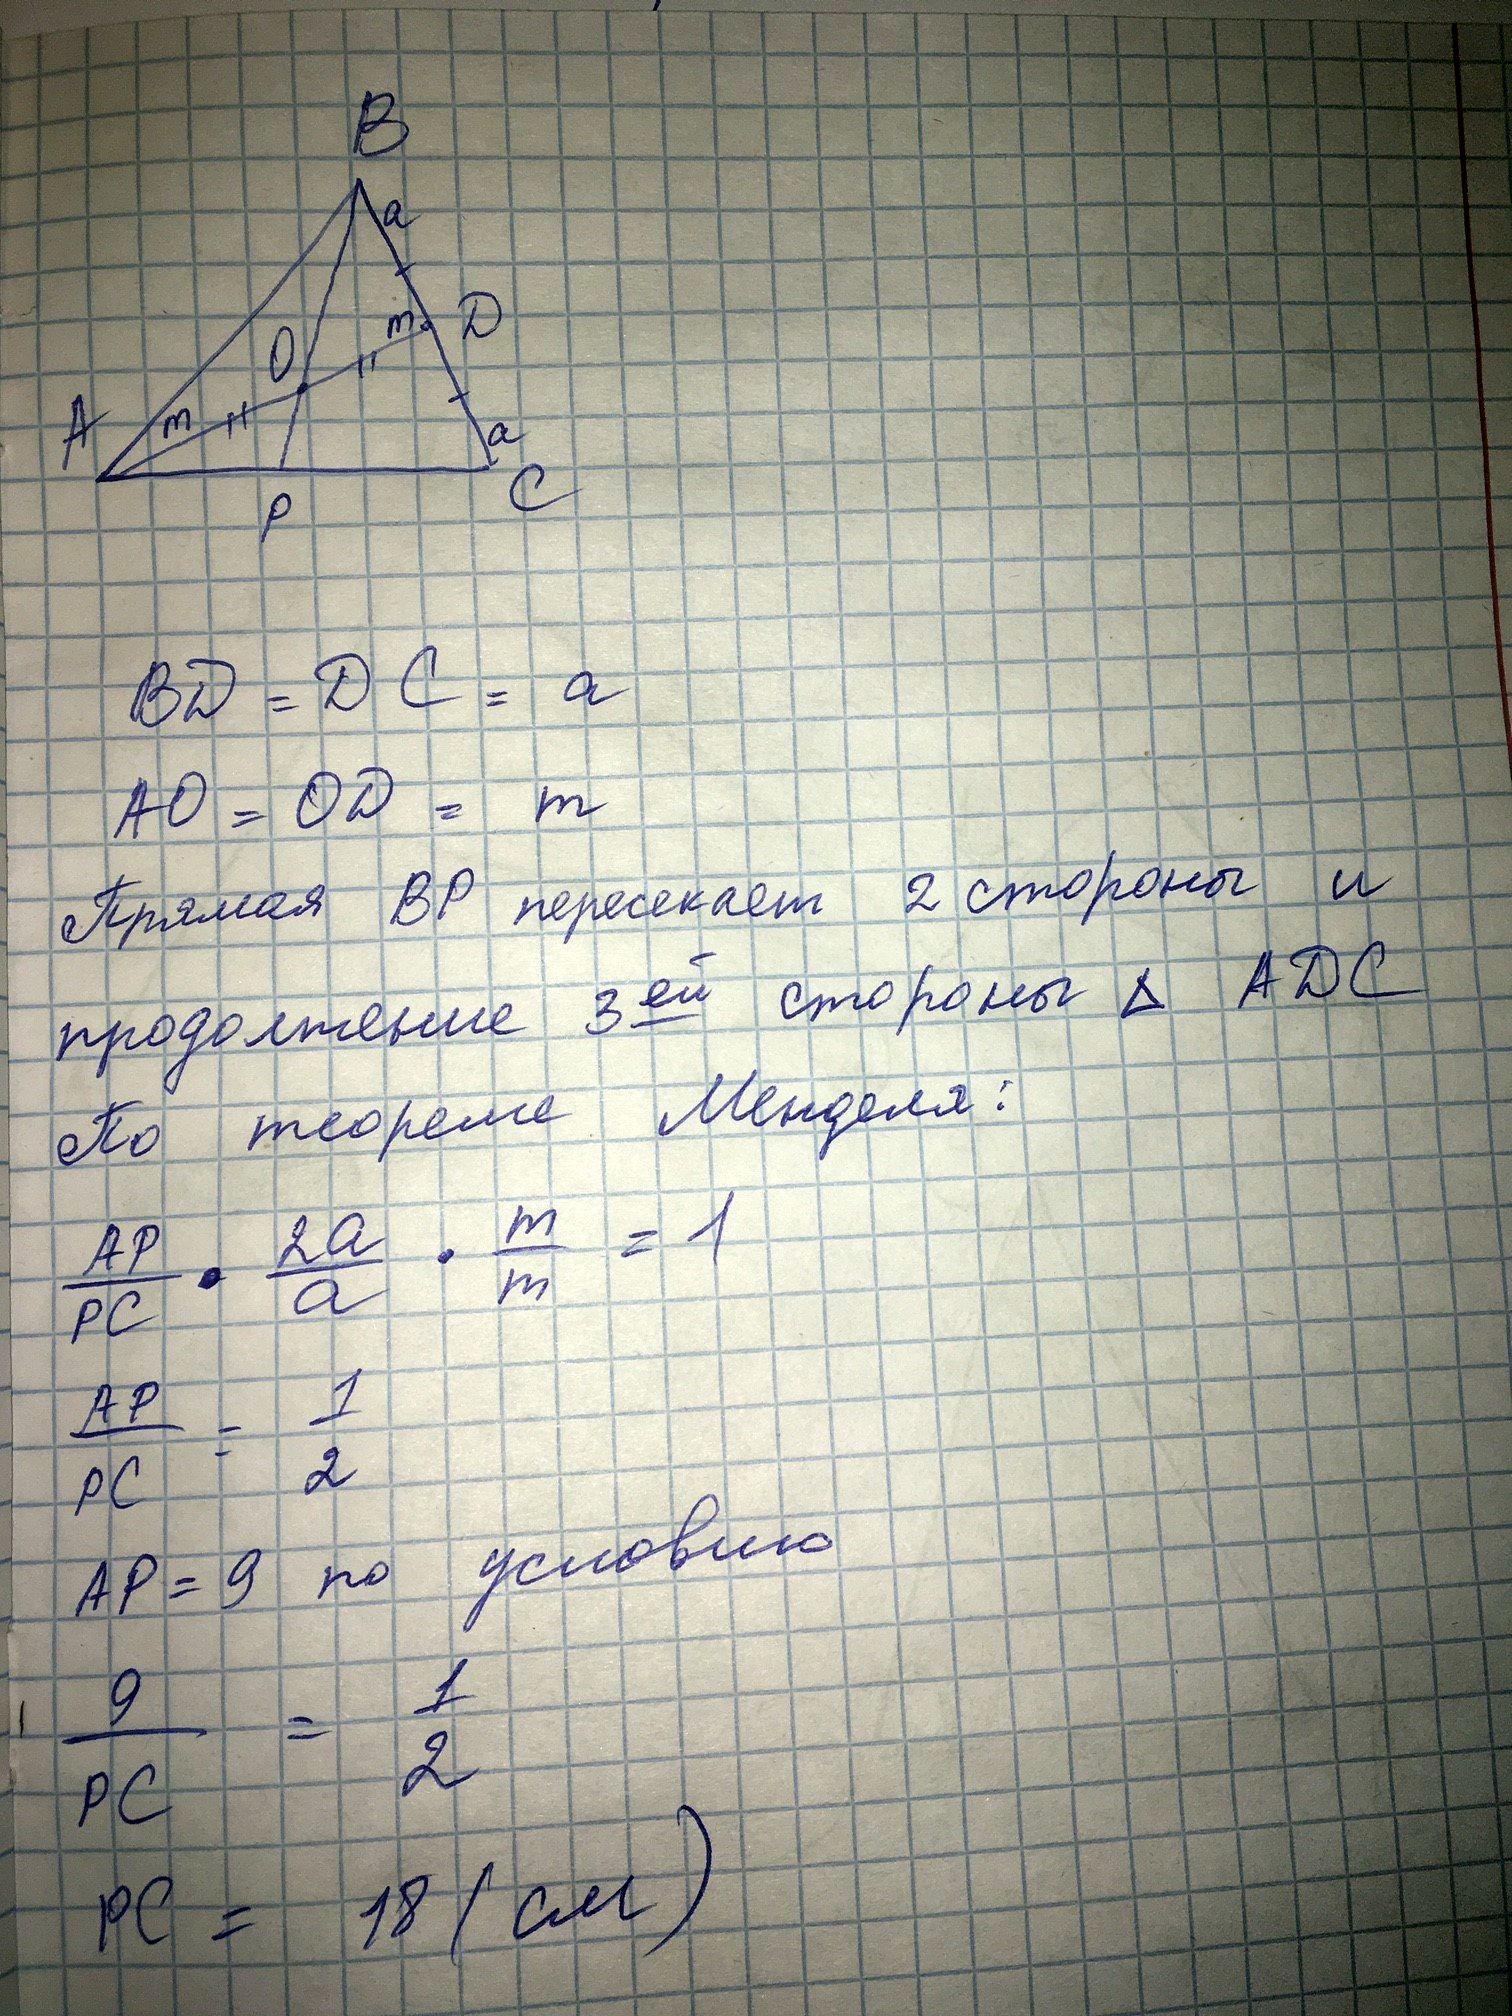 B
a
D
m
O
m
A
a
C
P
BD = DC = a
AO = OD = m
Прямая BP пересекает 2 стороны и
продолжение 3ей стороны Δ ADC
По теореме Менделя:
AP/PC · 2a/a · m/m = 1
AP/PC = 1/2
AP = 9 по условию
9/PC = 1/2
PC = 18 (см)